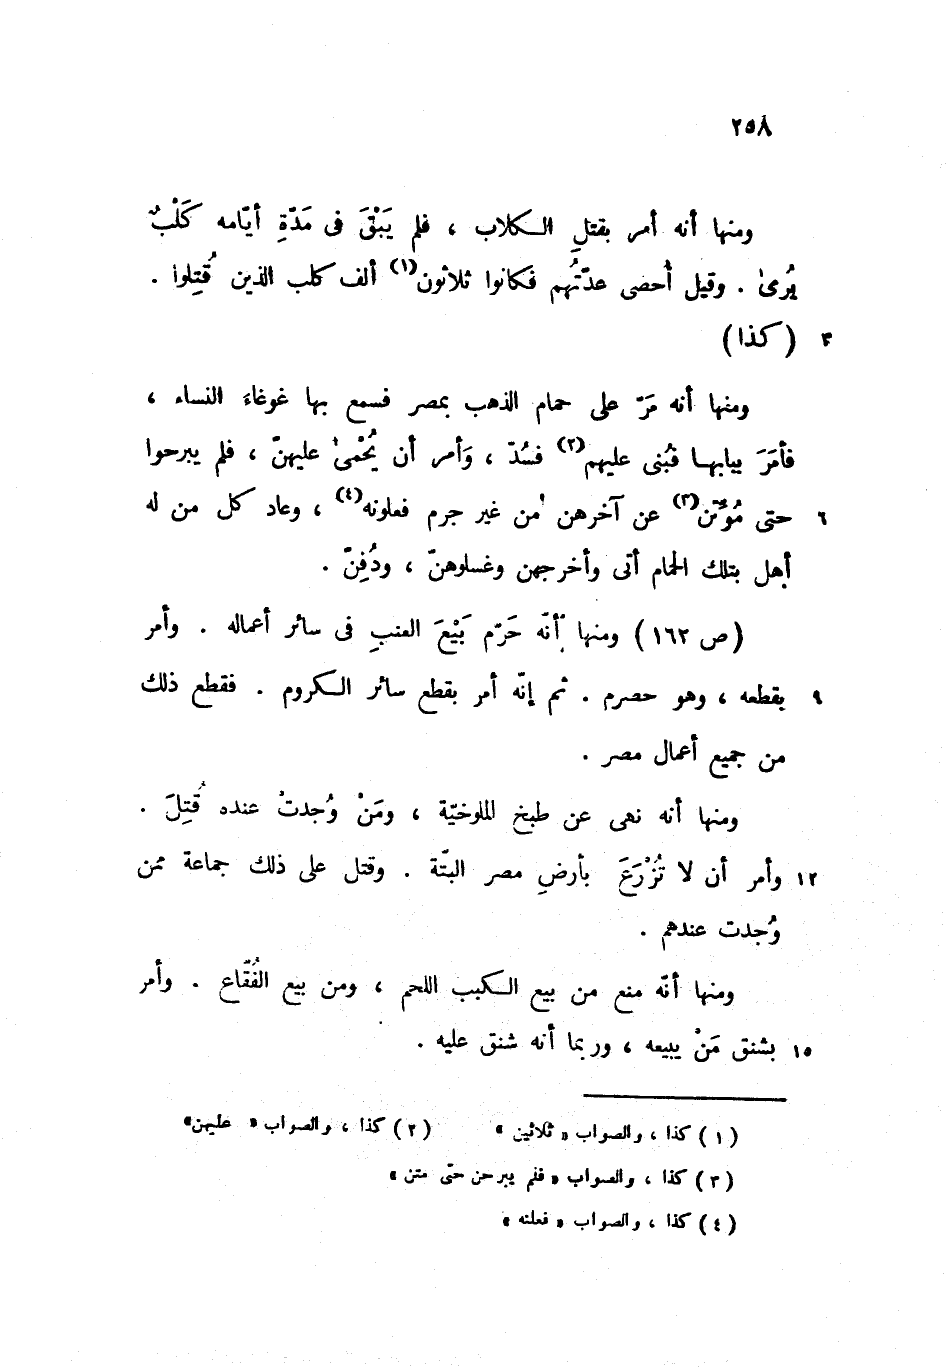 ٢٥٨
ومنها أنه أمر بقتلِ الكلاب ، فلم يَبْقَ فى مَدّةِ أيّامه كَلْبٌ
يُرىٰ . وقيل أُحصى عدّتُهم فكانوا ثلاثون(١) ألف كلب الذين قُتِلوا .
٣ (كذا)
ومنها أنه مَرّ على حمام الذهب بمصر فسمع بها غوغاءَ النساء ،
فأمَرَ ببابها فبُنى عليهم(٢) فسُدّ ، وَأمر أن يُحْمىٰ عليهنّ ، فلم يبرحوا
٦ حتى مُوتّن(٣) عن آخرهن من غير جرم فعلونه(٤) ، وعاد كل من له
أهل بتلك الحمام أتى وأخرجهن وغسلوهنّ ، ودُفِنّ .
(ص ١٦٢) ومنها أنّه حَرّم بَيْعَ العنبِ فى سائر أعماله . وأمر
٩ بقطعه ، وهو حصرم . ثم إنّه أمر بقطع سائر الكروم . فقطع ذلك
من جميع أعمال مصر .
ومنها أنه نهى عن طبخ الملوخيّة ، ومَنْ وُجدتْ عنده قُتِلَ .
١٢ وأمر أن لا تُزْرَعَ بأرضِ مصر البتّة . وقتل على ذلك جماعة ممن
وُجدت عندهم .
ومنها أنّه منع من بيع الكبب اللحم ، ومن بيع الفُقّاع . وأمر
١٥ بشنق مَنْ يبيعه ، وربما أنه شنق عليه .
(١) كذا ، والصواب « ثلاثين » (٢) كذا ، والصواب « عليهن»
(٣) كذا ، والصواب « فلم يبرحن حتّى متن »
(٤) كذا ، والصواب « فعلنه »